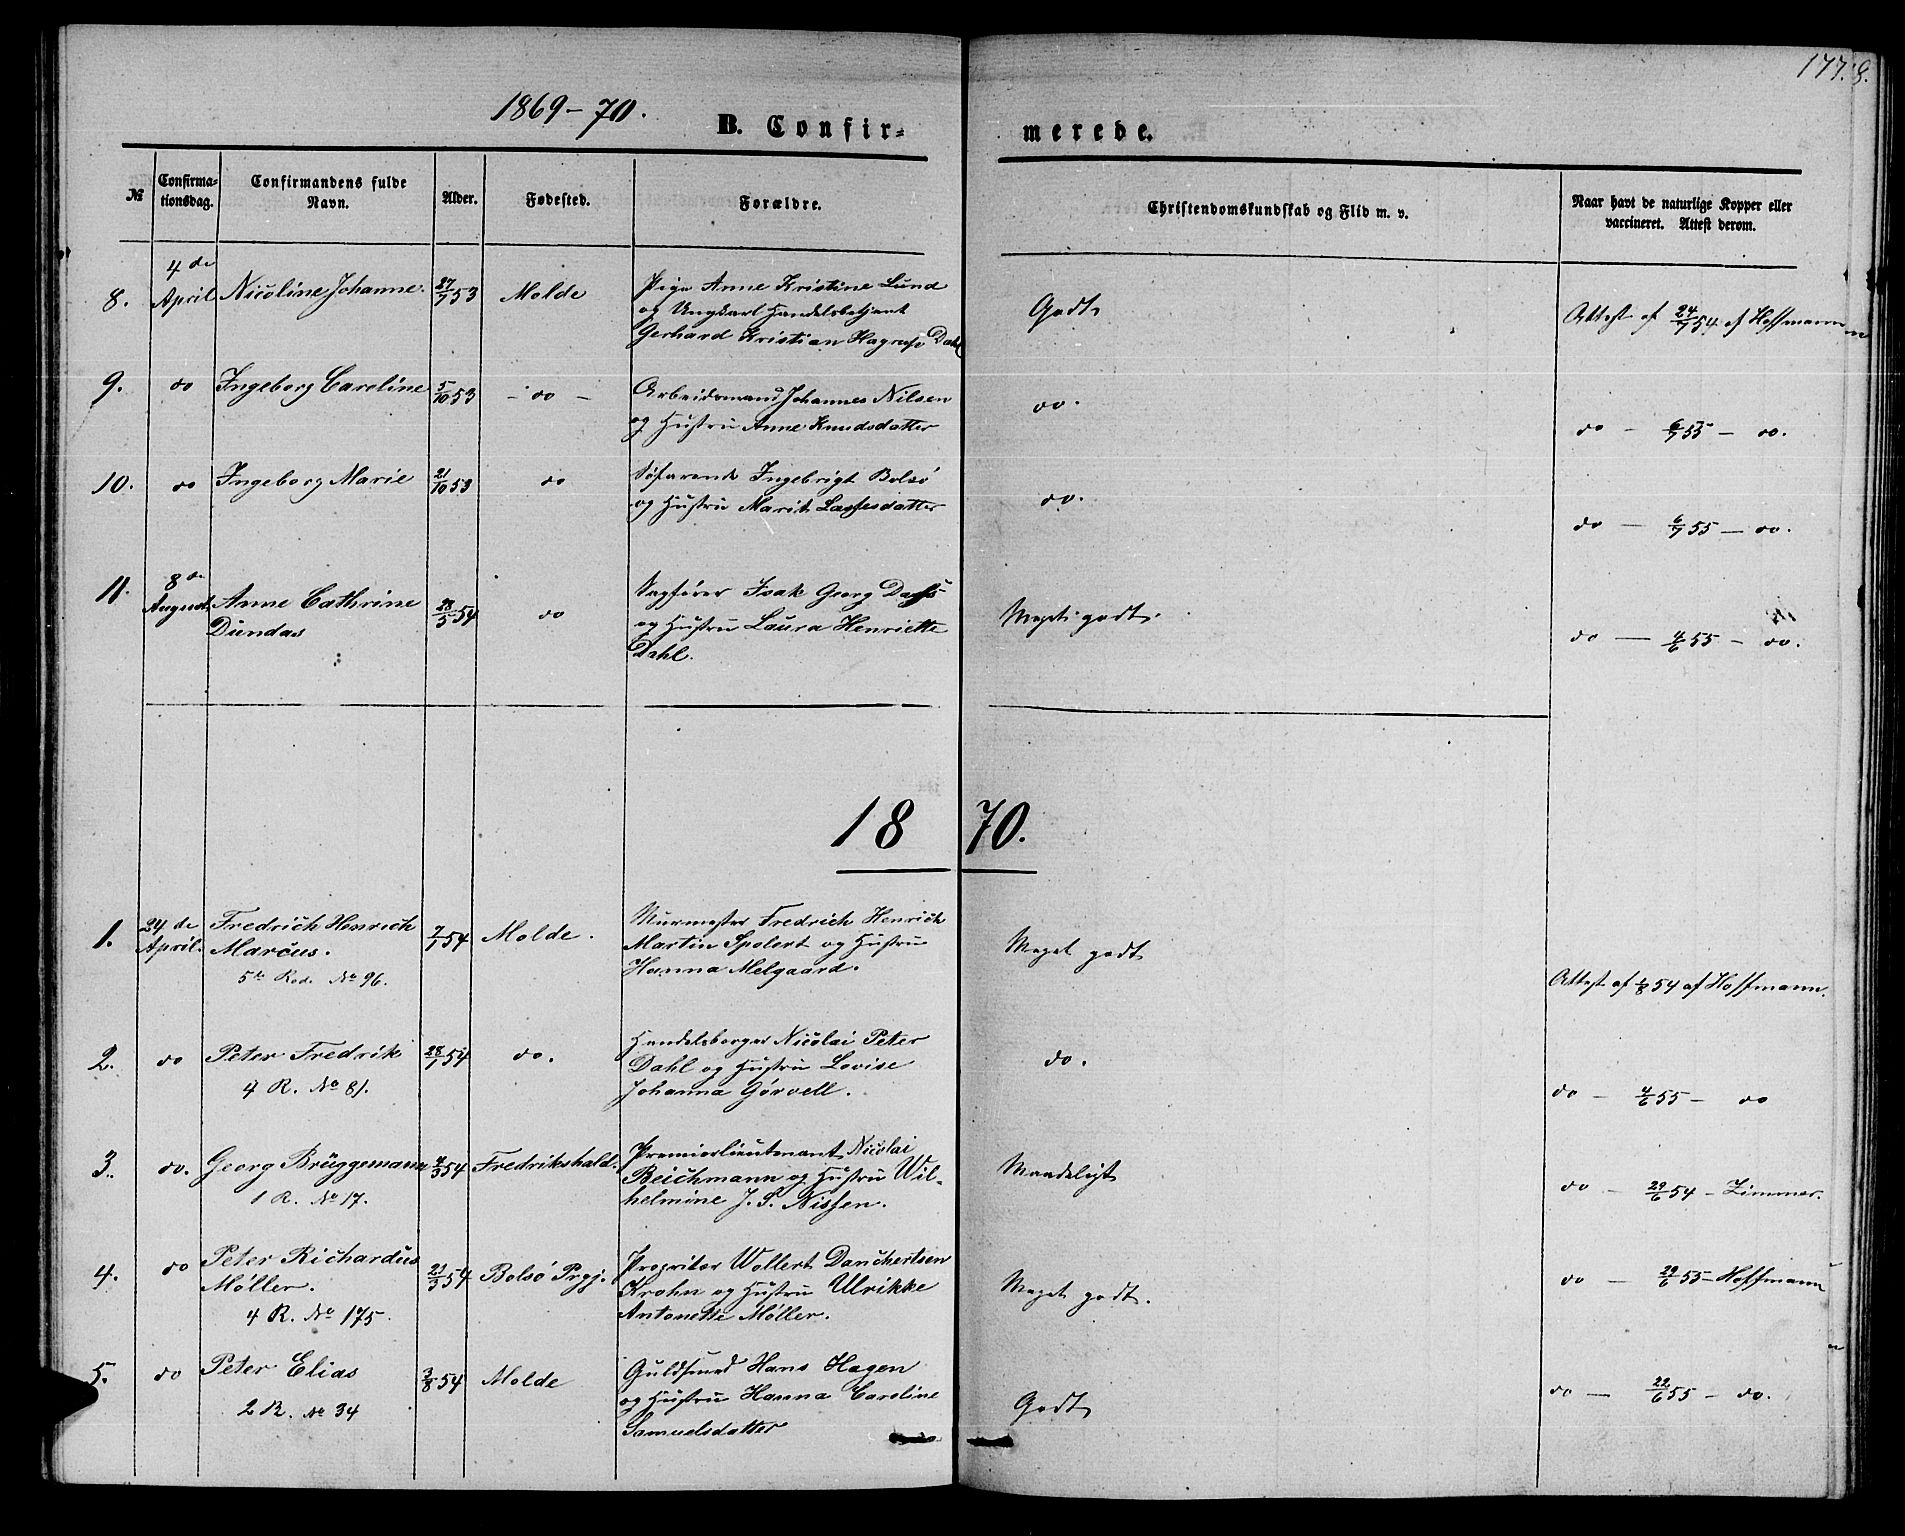 177.8.
1869-70.
B. Confir-
merede.
№
Confirma-
tionsdag.
Confirmandens fulde
Navn.
Alder.
Fødested.
Forældre.
Christendomskundskab og Flid m. v.
Naar havt de naturlige Kopper eller
vaccineret. Attest derom.
8.
4de
April
Nicoline Johanne.
27/7 53
Molde
Pige Anne Kristine Lund
og Ungkarl Handelsbetjent
Gerhard Kristian Hagrup Dahl
Godt
Attest af 24/7 54 af Hoffmann
9.
do
Ingeborg Caroline
5/10 53
- do -
Arbeidsmand Johannes Nilsen
og Hustru Anne Knudsdatter
do.
do - 6/7 55 - do.
10.
do
Ingeborg Marie
21/10 53
do
Søfarende Ingebrigt Bolsø
og Hustru Marit Lassesdatter
do.
do - 6/7 55 - do.
11.
8de
August.
Anne Cathrine
Dundas
28/5 54
do
Sagfører Isak Georg Dass
og Hustru Laura Henriette
Dahl.
Meget godt.
do - 4/6 55 - do.
1870.
1.
24de
April.
Fredrich Henrich
Marcus.
5te Rod. No 96.
7/1 54
Molde.
Murmester Fredrich Henrich
Martin Spolert og Hustru
Hanna Melgaard.
Meget godt
Attest af 1/8 54 af Hoffmann.
2.
do
Peter Fredrik
4 R. No 81.
28/1 54
do.
Handelsborger Nicolai Peter
Dahl og Hustru Lovise
Johanna Gørvell.
do.
do - 4/6 55 - do
3.
do.
Georg Brüggemann
1 R. No 17.
4/3 54
Fredrikshald.
Premierlieutenant Nicolai
Reichmann og Hustru Wil-
helmine J. S. Nissen.
Maadeligt
do - 29/6 54 - Zimmer.
4.
do
Peter Richardus
Møller.
4 R. No 175.
21/3 54
Bolsø Prgj.
Propritær Wollert Danchertsen
Krohn og Hustru Ulrikke
Antonette Møller.
Meget godt.
do - 29/6 55 - Hoffmann
5.
do
Peter Elias
2 R. No 34
3/8 54
Molde
Guldsmed Hans Hagen
og Hustru Hanna Caroline
Samuelsdatter
Godt
do - 22/6 55 - do.